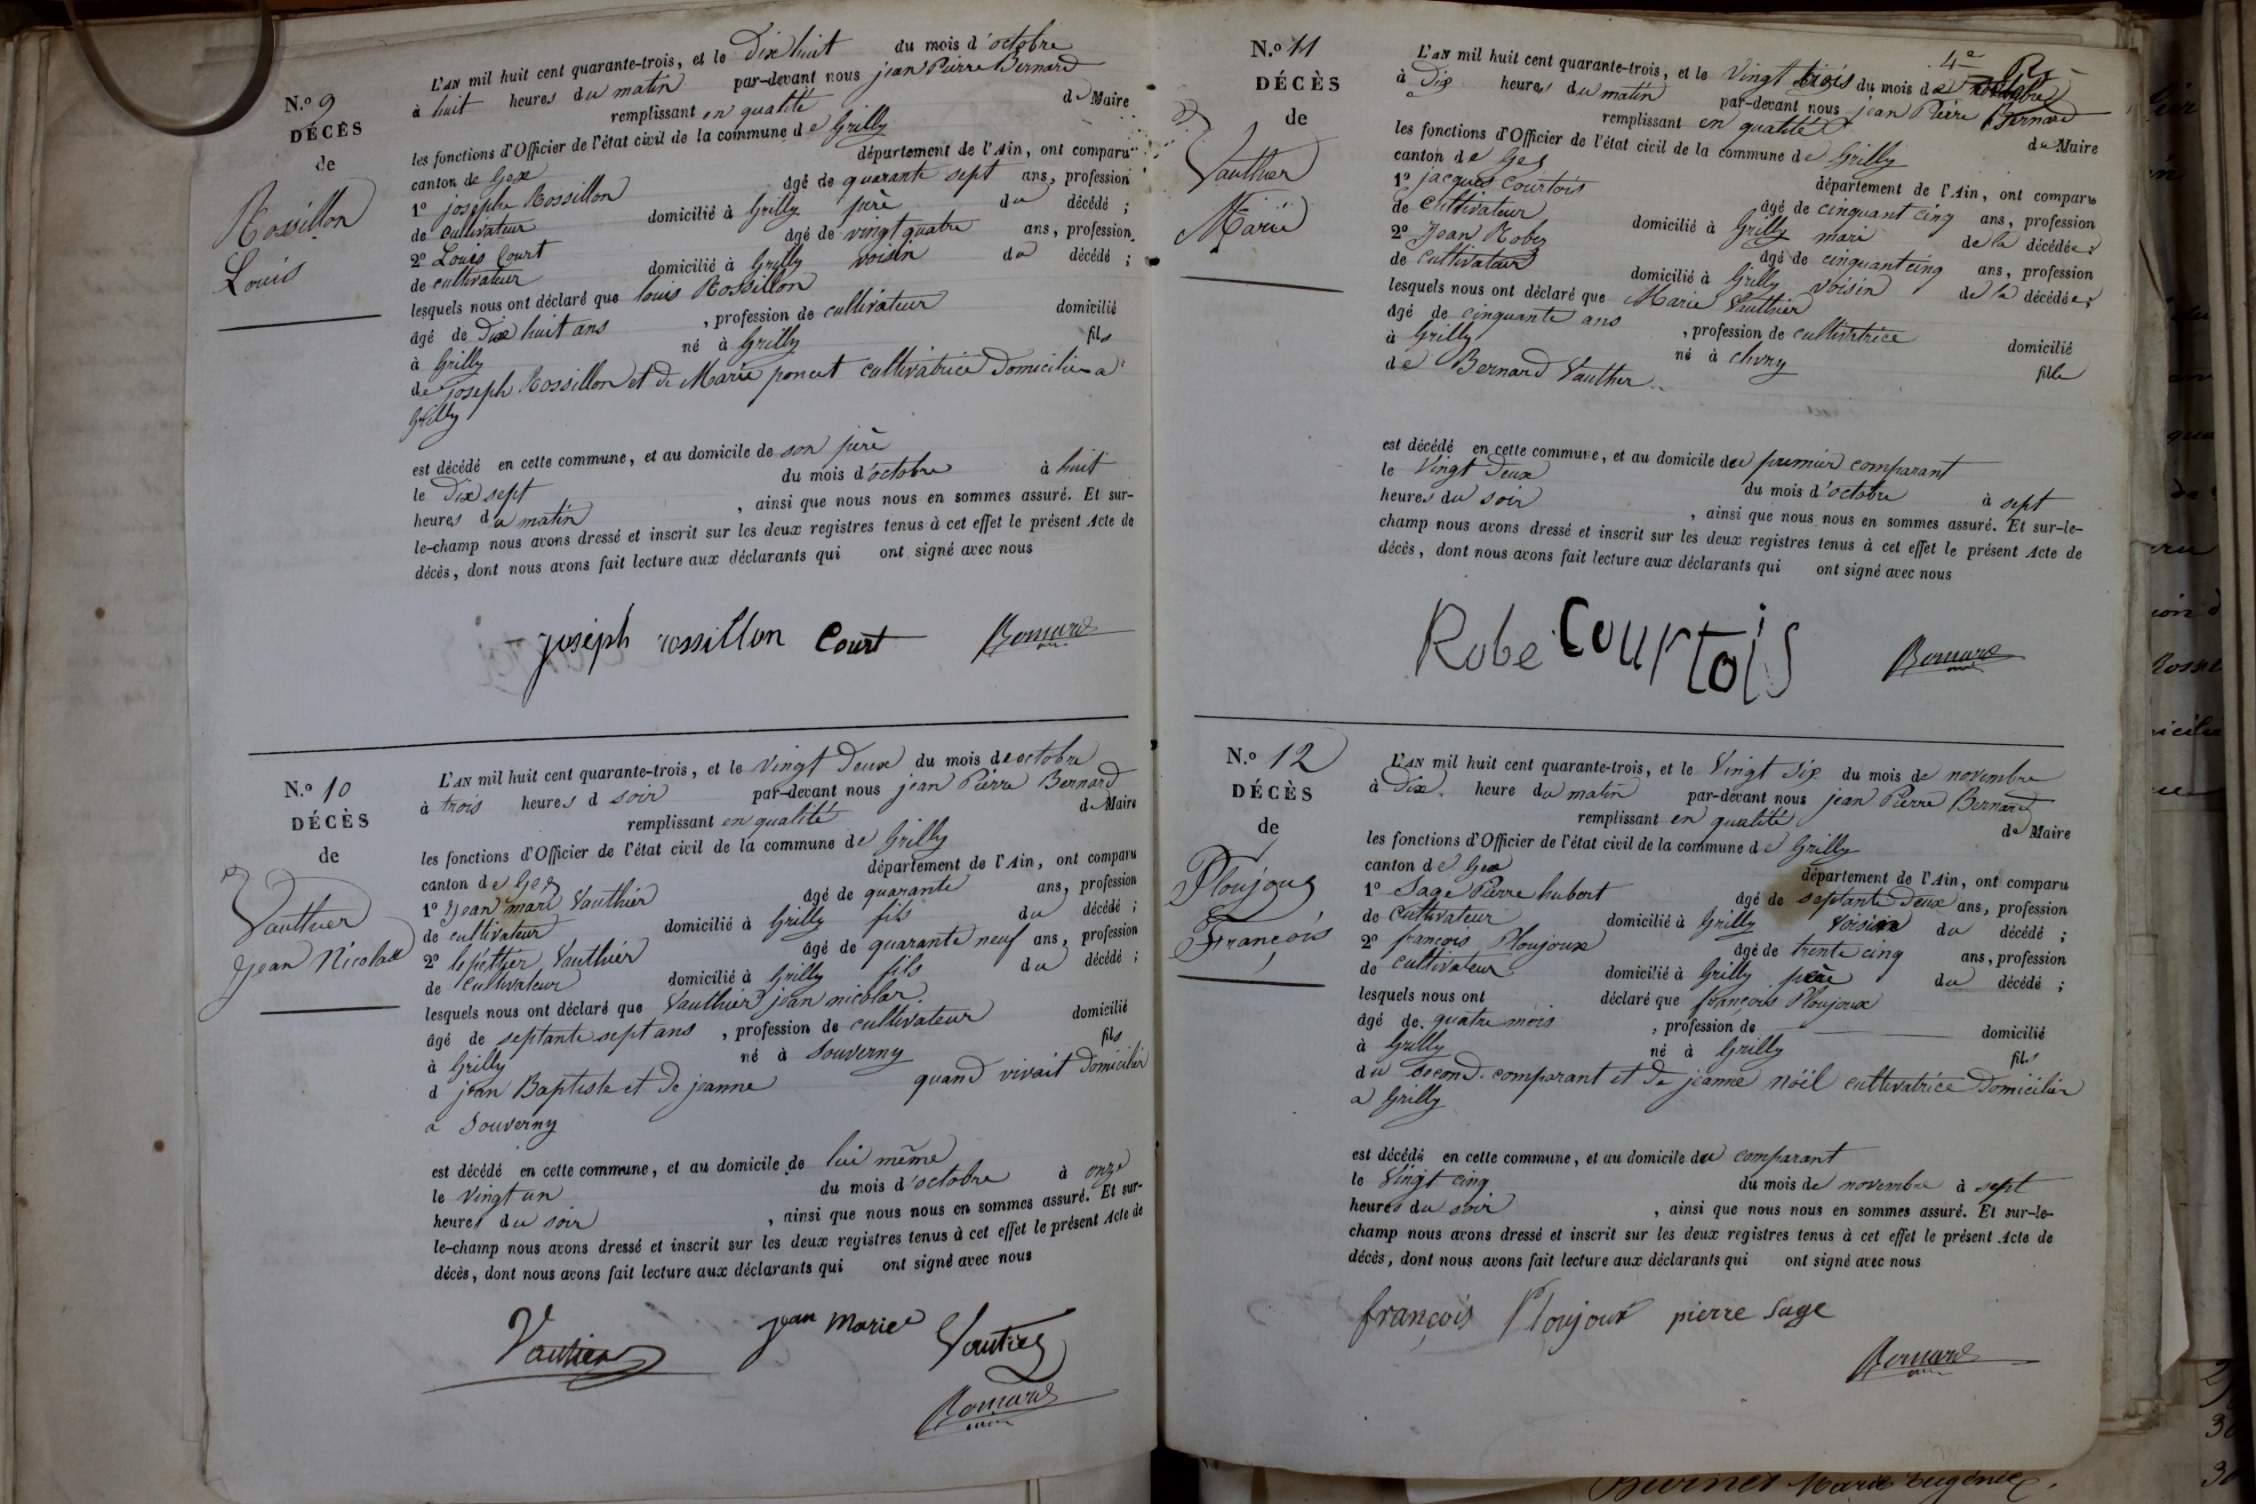 N.º 9
DÉCÈS
de
Rossillon
Louis
L'AN mil huit cent quarante-trois, et le Dix huit du mois d'octobre
à huit heures du matin par-devant nous jean Pierre Bernard
remplissant en qualité de Maire
les fonctions d'Officier de l'état civil de la commune de Grilly
canton de Gex département de l'Ain, ont comparu
1º josephe Rossillon âgé de quarante sept ans, profession
de cultivateur domicilié à Grilly père du décédé ;
2º Louis Court âgé de vingt quatre ans, profession
de cultivateur domicilié à Grilly voisin du décédé ;
lesquels nous ont déclaré que louis Rossillon
âgé de Dix huit ans , profession de cultivateur domicilié
à Grilly né à Grilly fils
de joseph Rossillon et de Marie poncet cultivatrice Domiciliés a
Grilly
est décédé en cette commune, et au domicile de son père
le Dix sept du mois d'octobre à huit
heures du matin , ainsi que nous nous en sommes assuré. Et sur-
le-champ nous avons dressé et inscrit sur les deux registres tenus à cet effet le présent Acte de
décès, dont nous avons fait lecture aux déclarants qui ont signé avec nous
joseph rossillon Court Bernard
N.º 10
DÉCÈS
de
Vauthier
Jean Nicolas
L'AN mil huit cent quarante-trois, et le vingt Deux du mois de octobre
à trois heures d soir par-devant nous jean Pierre Bernard
remplissant en qualité de Maire
les fonctions d'Officier de l'état civil de la commune de Grilly
canton de Gex département de l'Ain, ont comparu
1º Jean marie Vauthier âgé de quarante ans, profession
de cultivateur domicilié à Grilly fils du décédé ;
2º Vauthier âgé de quarante neuf ans, profession
de cultivateur domicilié à Grilly fils du décédé ;
lesquels nous ont déclaré que Vauthier jean nicolas
âgé de septante sept ans , profession de cultivateur domicilié
à Grilly né à Souverny fils
d jean Baptiste et de jeanne quand vivait Domicilié
a Souverny
est décédé en cette commune, et au domicile de lui même
le vingt un du mois d'octobre à onze
heures du soir , ainsi que nous nous en sommes assuré. Et sur-
le-champ nous avons dressé et inscrit sur les deux registres tenus à cet effet le présent Acte de
décès, dont nous avons fait lecture aux déclarants qui ont signé avec nous
Vautier jean marie Vautier
Bernard
N.º 11
DÉCÈS
de
Vauthier
Marie
L'AN mil huit cent quarante-trois, et le vingt trois du mois de octobre
à Dix heures du matin par-devant nous jean Pierre Bernard
remplissant en qualité de Maire
les fonctions d'Officier de l'état civil de la commune de Grilly
canton de Gex département de l'Ain, ont comparu
1º jacques Courtois âgé de cinquant cinq ans, profession
de cultivateur domicilié à Grilly mari de la décédée ;
2º Jean Robez âgé de cinquant cinq ans, profession
de cultivateur domicilié à Grilly voisin de la décédée ;
lesquels nous ont déclaré que Marie Vauthier
âgé de cinquante ans , profession de cultivatrice domicilié
à Grilly né à chvry fille
de Bernard Vauthier
est décédé en cette commune, et au domicile du premier comparant
le vingt Deux du mois d'octobre à sept
heures du soir , ainsi que nous nous en sommes assuré. Et sur-le-
champ nous avons dressé et inscrit sur les deux registres tenus à cet effet le présent Acte de
décès, dont nous avons fait lecture aux déclarants qui ont signé avec nous
Robe Courtois Bernard
N.º 12
DÉCÈS
de
Ploujoux
François
L'AN mil huit cent quarante-trois, et le vingt six du mois de novembre
à Dix heure du matin par-devant nous jean Pierre Bernard
remplissant en qualité de Maire
les fonctions d'Officier de l'état civil de la commune de Grilly
canton de Gex département de l'Ain, ont comparu
1º Sage Pierre hubert âgé de septante Deux ans, profession
de cultivateur domicilié à Grilly voisin du décédé ;
2º françois Ploujoux âgé de trente cinq ans, profession
de cultivateur domicilié à Grilly père du décédé ;
lesquels nous ont déclaré que françois Ploujoux
âgé de quatre mois , profession de domicilié
à Grilly né à Grilly fils
du second comparant et de jeanne nöel cultivatrice Domicilié
a Grilly
est décédé en cette commune, et au domicile du comparant
le vingt cinq du mois de novembre à sept
heures du soir , ainsi que nous nous en sommes assuré. Et sur-le-
champ nous avons dressé et inscrit sur les deux registres tenus à cet effet le présent Acte de
décès, dont nous avons fait lecture aux déclarants qui ont signé avec nous
françois Ploujoux pierre Sage
Bernard
Marie Eugénie